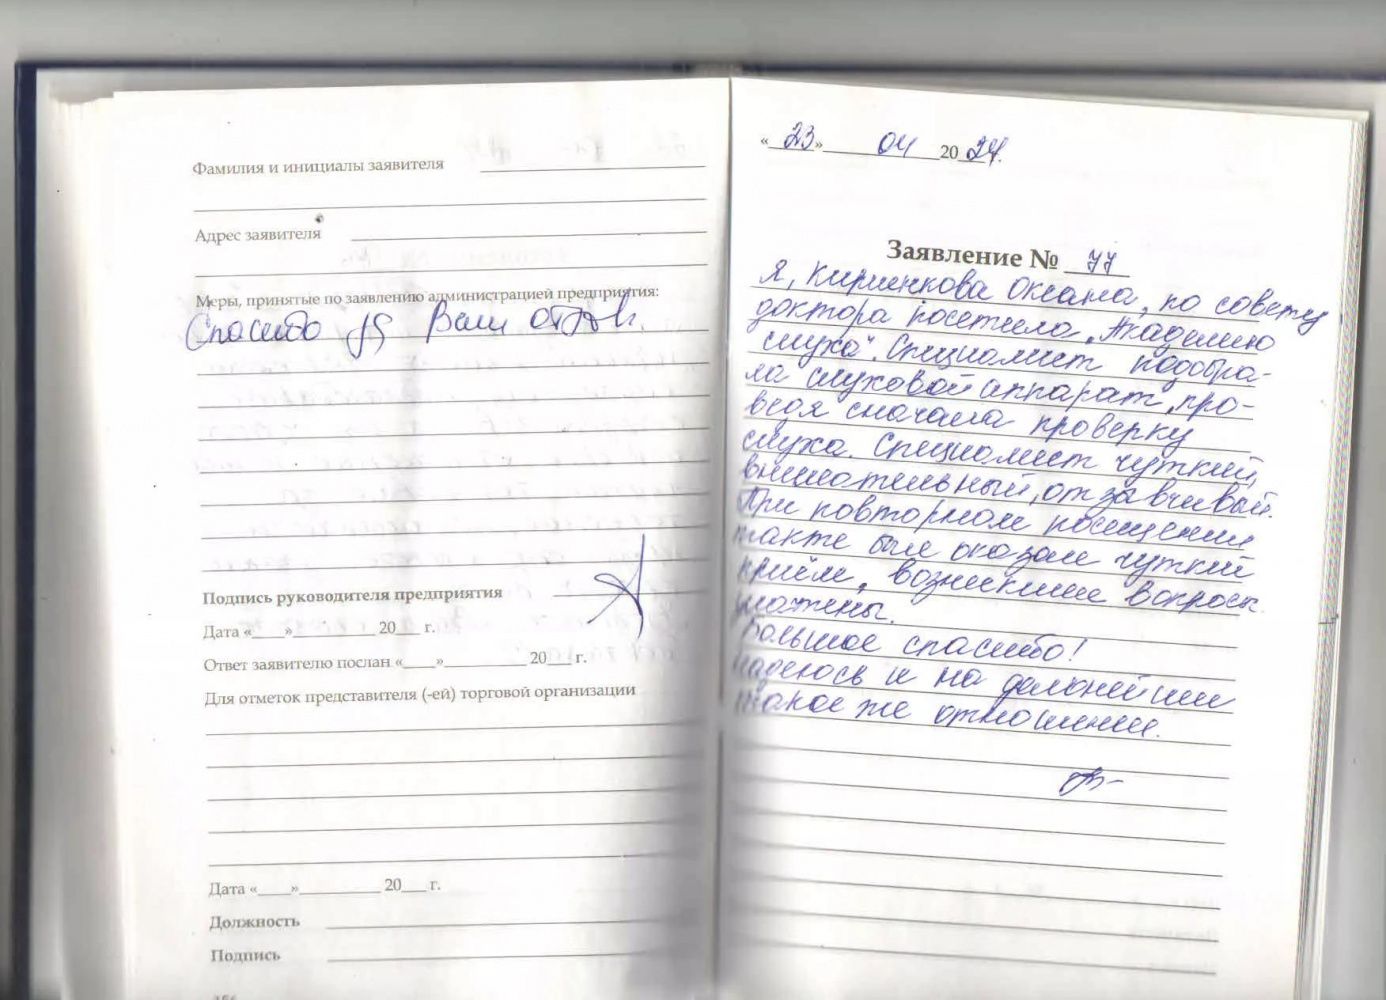 Фамилия и инициалы заявителя
Адрес заявителя
Меры, принятые по заявлению администрацией предприятия:
Спасибо за Ваш отзыв.
Подпись руководителя предприятия
Дата «____»__________ 20___ г.
Ответ заявителю послан «____»__________ 20___ г.
Для отметок представителя (-ей) торговой организации
Дата «____»__________ 20___ г.
Должность
Подпись
« 23 » 04 20 24.
Заявление № 77
Я, Кириенкова Оксана, по совету
доктора посетила „Академию
слуха“. Специалист подобра-
ла слуховой аппарат, про-
ведя сначала проверку
слуха. Специалист чуткий,
внимательный, отзавчивый.
При повторном посещении
также был оказан чуткий
приём, возникшие вопросы
улажены.
Большое спасибо!
Надеюсь и на дальнейшии
такое же отношении.